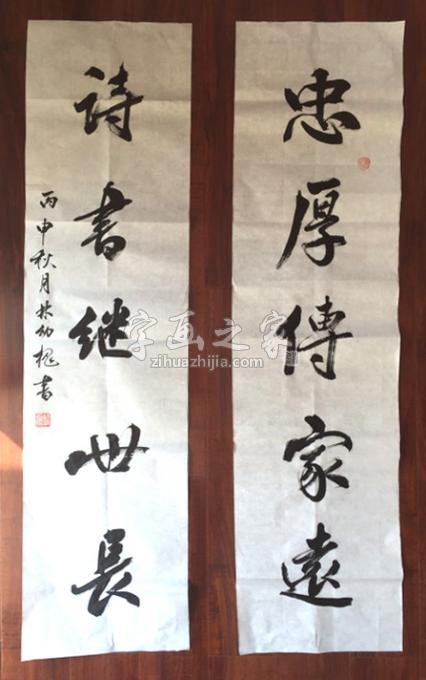 忠厚傳家遠
詩書继世長
丙申秋月林幼槐書
字画之家
zihuazhijia.com